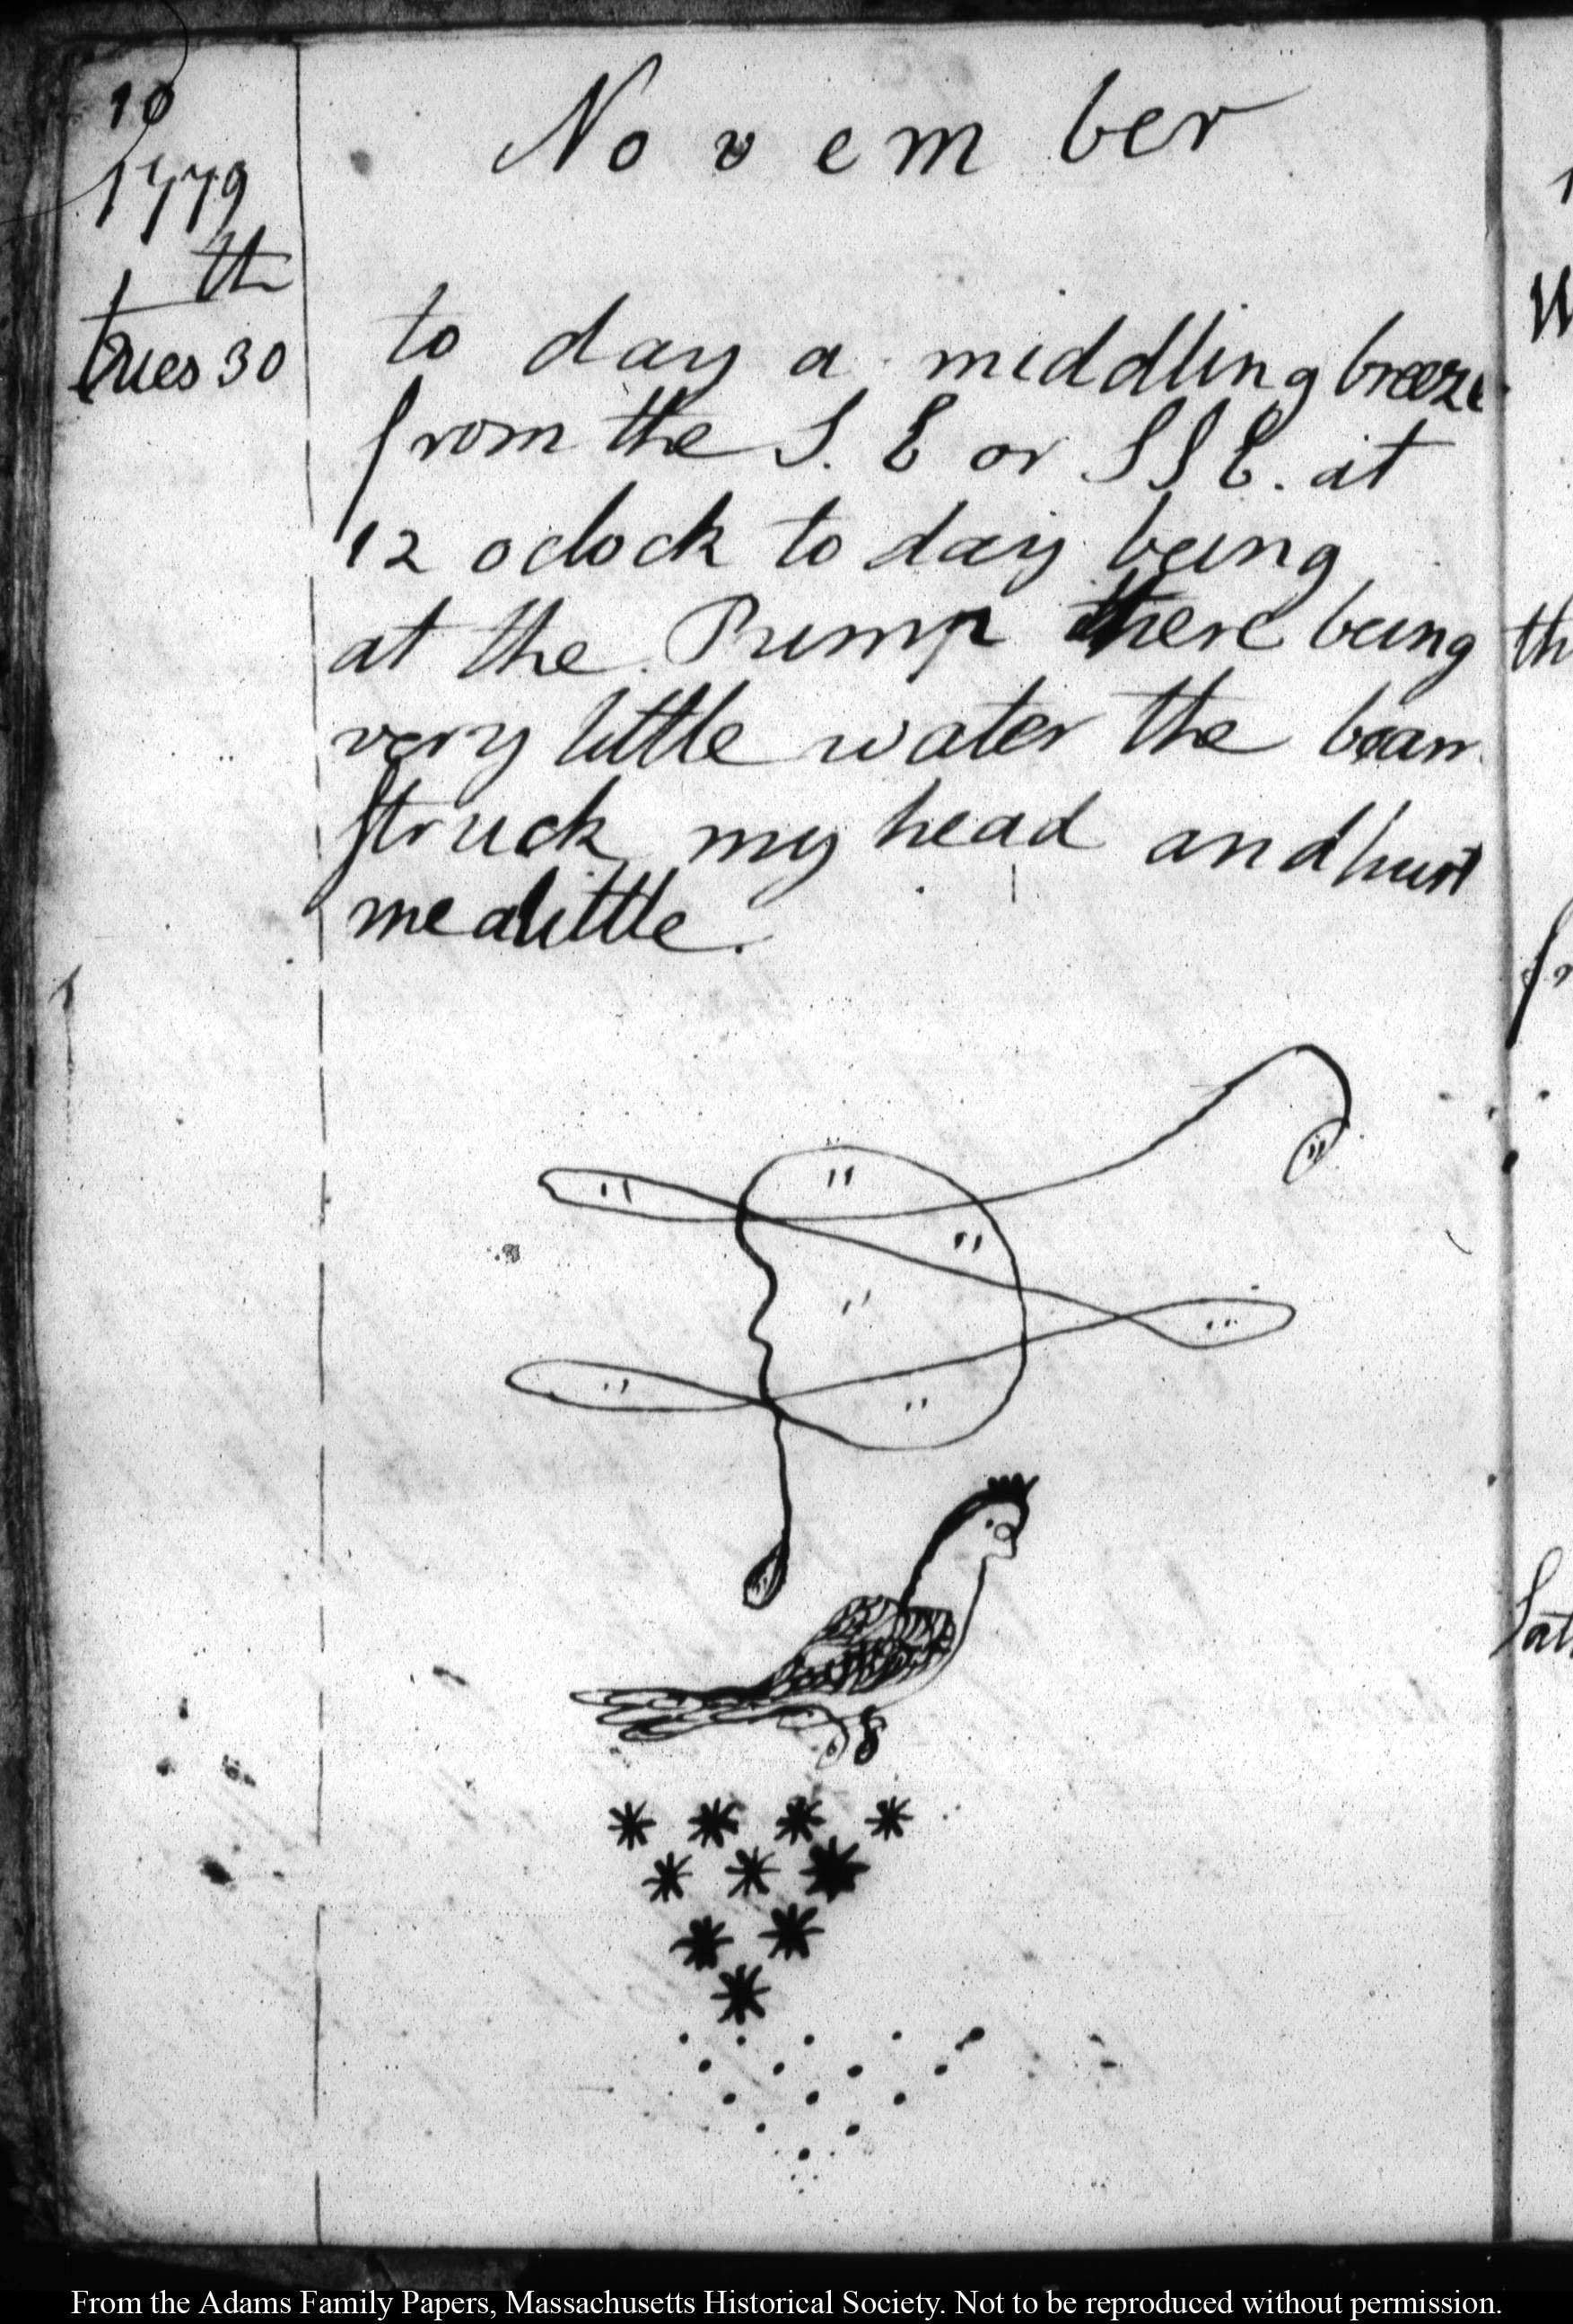 10
1779
th
tues 30
November
to day a middling breeze
from the S. E or S S E. at
12 oclock to day being
at the Pump there being
very little water the beam
struck my head and hurt
me a little.
th
fr
Sat
From the Adams Family Papers, Massachusetts Historical Society. Not to be reproduced without permission.